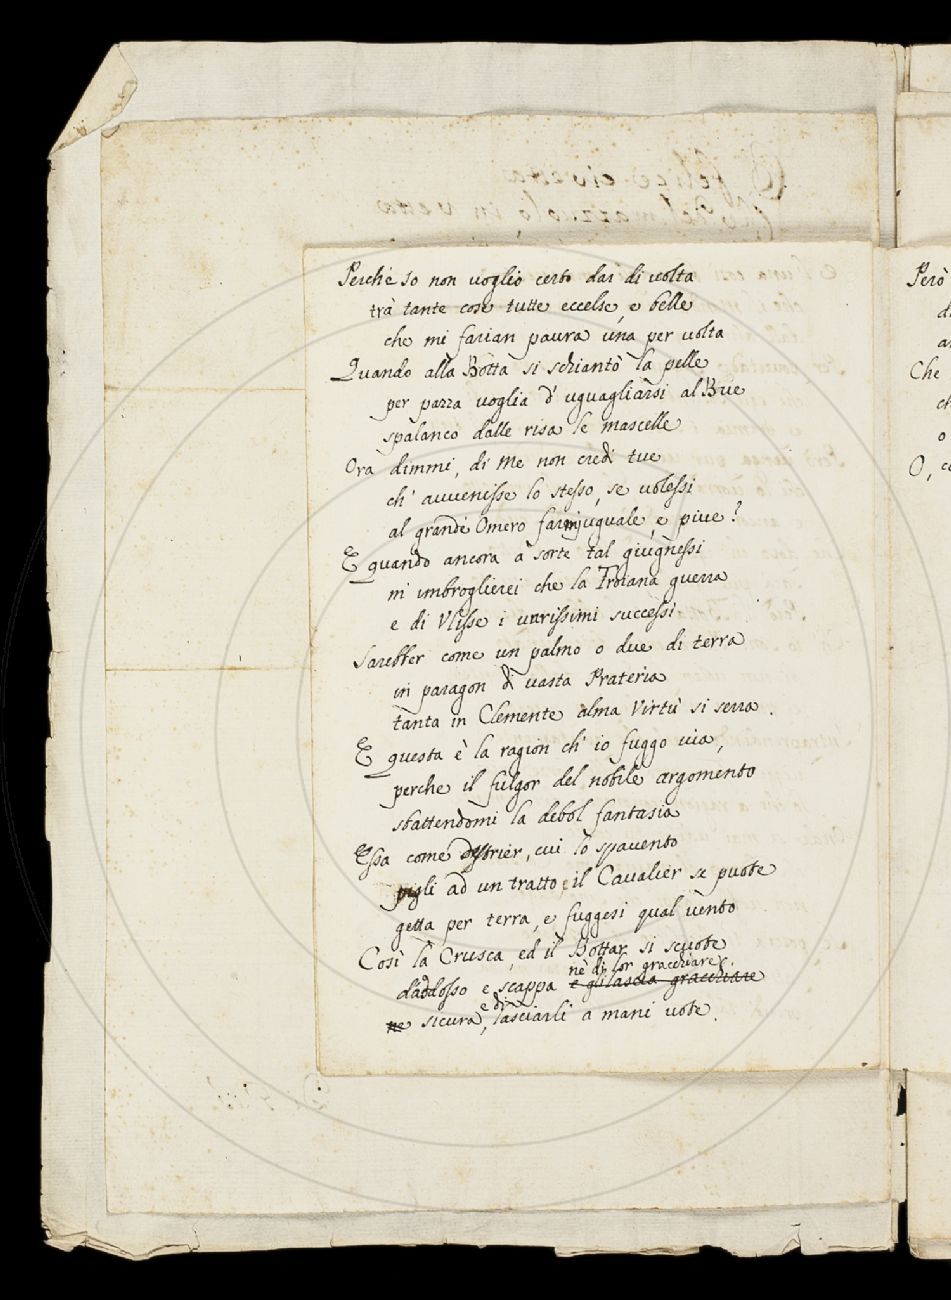 Perchè Io non voglio certo dar di volta
trà tante cose tutte eccelse, e belle
che mi farian paura una per volta
Quando alla Botta si schiantò la pelle
per pazza voglia d' uguagliarsi al Bue
spalancò dalle risa le mascelle
Ora dimmi, di me non credi tue
ch' avvenisse lo stesso, se volessi
al grande Omero uguale, e piue?
E quando ancora a sorte tal giugnessi
m' imbroglierei che la Troiana guerra
e di Ulisse i varissimi successi
Sarebber come un palmo o due di terra
in paragon di vasta Prateria
tanta in Clemente alma Virtù si serra.
E questa è la ragion ch' io fuggo via,
perche il fulgor del nobile argomento
sbattendomi la debol fantasia
Essa come destrier, cui lo spavento
pigli ad un tratto, il Cavalier se puote
getta per terra, e fuggesi qual vento
Così la Crusca, ed il Bottar si scuote
nè di lor gracchiare
d'addosso e scappa e gli lascia gracchiare
e di
ne sicura, lasciarli a mani vote.
Però
Che
O,